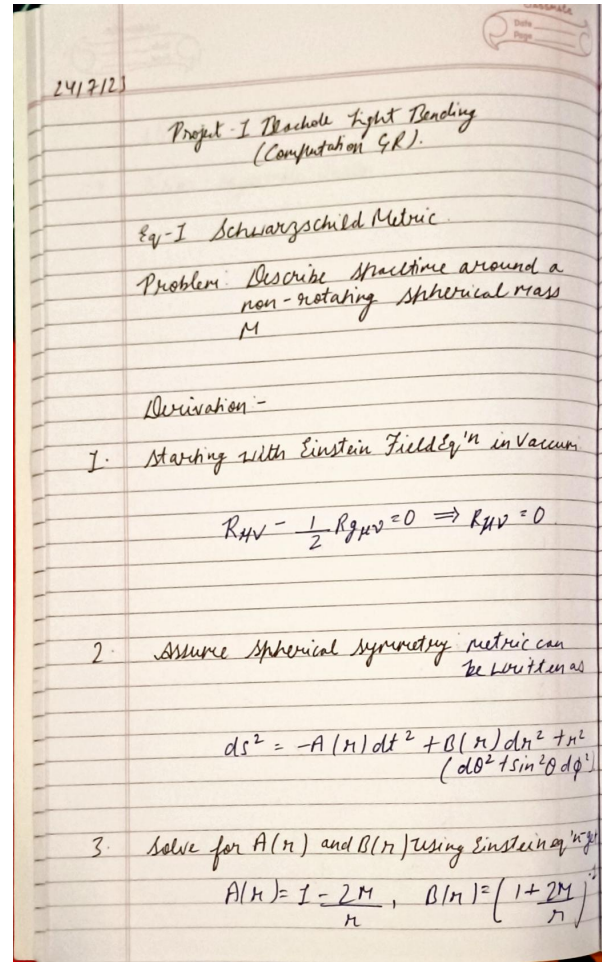 classmate
Date
Page
24/7/25
Project-I Blackhole Light Bending
(Computation GR).
Eq-I Schwarzschild Metric
Problem: Describe Spacetime around a
non-rotating spherical mass
M
Derivation:-
1. Starting with Einstein Field Eq'n in Vaccum
Rμν - 1/2 Rgμν = 0 ⇒ Rμν = 0
2. Assume Spherical Symmetry metric can
be written as
ds² = -A(r)dt² + B(r)dr² + r²
(dθ² + sin²θ dϕ²)
3. Solve for A(r) and B(r) using Einstein eq'n
A(r) = 1 - 2M/r , B(r) = (1 + 2M/r)